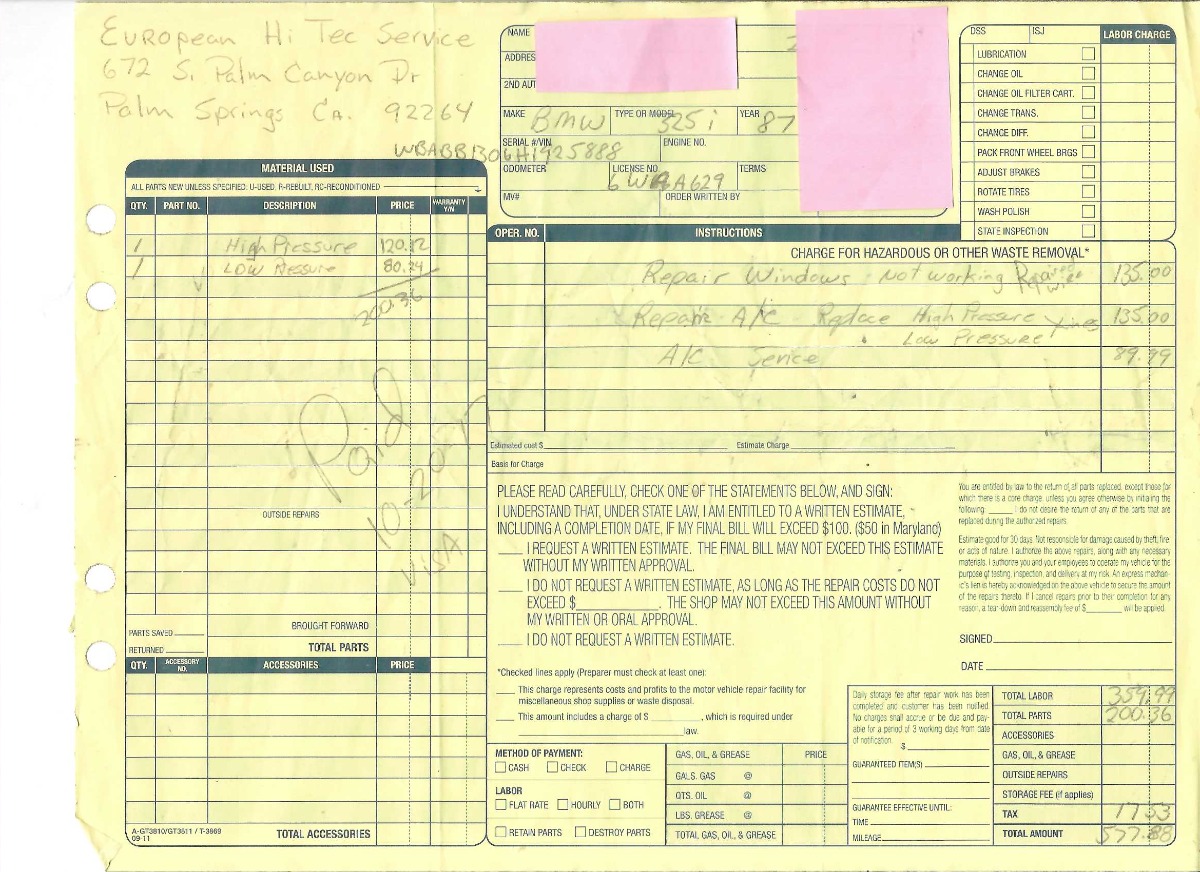 EUROPean Hi Tec Service
672 S. Palm Canyon Dr
Palm Springs CA. 92264
NAME
ADDRES
2ND AUT
MAKE BMW TYPE OR MODEL 325i YEAR 87
SERIAL #/VIN WBABB1306H1925888 ENGINE NO.
ODOMETER LICENSE NO. 6WAA629 TERMS
MV# ORDER WRITTEN BY
DSS ISJ LABOR CHARGE
LUBRICATION
CHANGE OIL
CHANGE OIL FILTER CART.
CHANGE TRANS.
CHANGE DIFF.
PACK FRONT WHEEL BRGS
ADJUST BRAKES
ROTATE TIRES
WASH POLISH
STATE INSPECTION
MATERIAL USED
ALL PARTS NEW UNLESS SPECIFIED: U-USED, R-REBUILT, RC-RECONDITIONED
QTY. PART NO. DESCRIPTION PRICE WARRANTY Y/N
1 High Pressure 120.12
1 LOW Pessure 80.24
200.36
Paid
10-20-15
VISA
OUTSIDE REPAIRS
BROUGHT FORWARD
PARTS SAVED
RETURNED
TOTAL PARTS
QTY. ACCESSORY NO. ACCESSORIES PRICE
A-GT3810/GT3811 / T-3869
09-11
TOTAL ACCESSORIES
OPER. NO. INSTRUCTIONS
CHARGE FOR HAZARDOUS OR OTHER WASTE REMOVAL*
Repair Windows Not working Repaired wire 135.00
Repair A/C Replace High Pressure Lines 135.00
Low Pressure
A/C Service 89.99
Estimated cost $ Estimate Charge
Basis for Charge
PLEASE READ CAREFULLY, CHECK ONE OF THE STATEMENTS BELOW, AND SIGN:
I UNDERSTAND THAT, UNDER STATE LAW, I AM ENTITLED TO A WRITTEN ESTIMATE,
INCLUDING A COMPLETION DATE, IF MY FINAL BILL WILL EXCEED $100. ($50 in Maryland)
I REQUEST A WRITTEN ESTIMATE. THE FINAL BILL MAY NOT EXCEED THIS ESTIMATE
WITHOUT MY WRITTEN APPROVAL.
I DO NOT REQUEST A WRITTEN ESTIMATE, AS LONG AS THE REPAIR COSTS DO NOT
EXCEED $ . THE SHOP MAY NOT EXCEED THIS AMOUNT WITHOUT
MY WRITTEN OR ORAL APPROVAL.
I DO NOT REQUEST A WRITTEN ESTIMATE.
You are entitled by law to the return of all parts replaced, except those for
which there is a core charge, unless you agree otherwise by initialing the
following: I do not desire the return of any of the parts that are
replaced during the authorized repairs.
Estimate good for 30 days. Not responsible for damage caused by theft, fire
or acts of nature. I authorize the above repairs, along with any necessary
materials. I authorize you and your employees to operate my vehicle for the
purpose of testing, inspection, and delivery at my risk. An express mechan-
ic's lien is hereby acknowledged on the above vehicle to secure the amount
of the repairs thereto. If I cancel repairs prior to their completion for any
reason, a tear-down and reassembly fee of $ will be applied.
SIGNED
DATE
*Checked lines apply (Preparer must check at least one):
This charge represents costs and profits to the motor vehicle repair facility for
miscellaneous shop supplies or waste disposal.
This amount includes a charge of $ , which is required under
law.
METHOD OF PAYMENT:
CASH CHECK CHARGE
LABOR
FLAT RATE HOURLY BOTH
RETAIN PARTS DESTROY PARTS
GAS, OIL, & GREASE PRICE
GALS. GAS @
QTS. OIL @
LBS. GREASE @
TOTAL GAS, OIL, & GREASE
Daily storage fee after repair work has been
completed and customer has been notified.
No charges shall accrue or be due and pay-
able for a period of 3 working days from date
of notification. $
GUARANTEED ITEM(S)
GUARANTEE EFFECTIVE UNTIL:
TIME
MILEAGE
TOTAL LABOR 359.99
TOTAL PARTS 200.36
ACCESSORIES
GAS, OIL, & GREASE
OUTSIDE REPAIRS
STORAGE FEE (if applies)
TAX 17.53
TOTAL AMOUNT 577.88